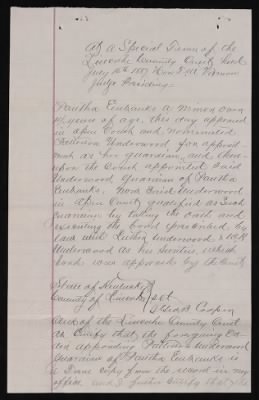 At a Special Term of the
Lincoln County Court held
July 16th 1887 Hon T. W. Varnon
Judge Presiding
Fantha Eubanks a minor over
14 years of age this day appeared
in open Court and nominated
Underwood for appoint
ment as her guardian, and there
upon the Court appointed said
Underwood Guardian of Fantha
Eubanks. Underwood
in open County qualified as such
Guardian by taking the oath and
executing the bond provided by
law with Underwood &
Underwood as her sureties, which
bond was approved by the Court
State of Kentucky
County of Lincoln Sct
I Geo B. Cooper
Clerk of the Lincoln County Court
do Certify that the foregoing Or
der appointing Underwood
Guardian of Fantha Eubanks is
a true copy from the record in my
office. and I further Certify that the